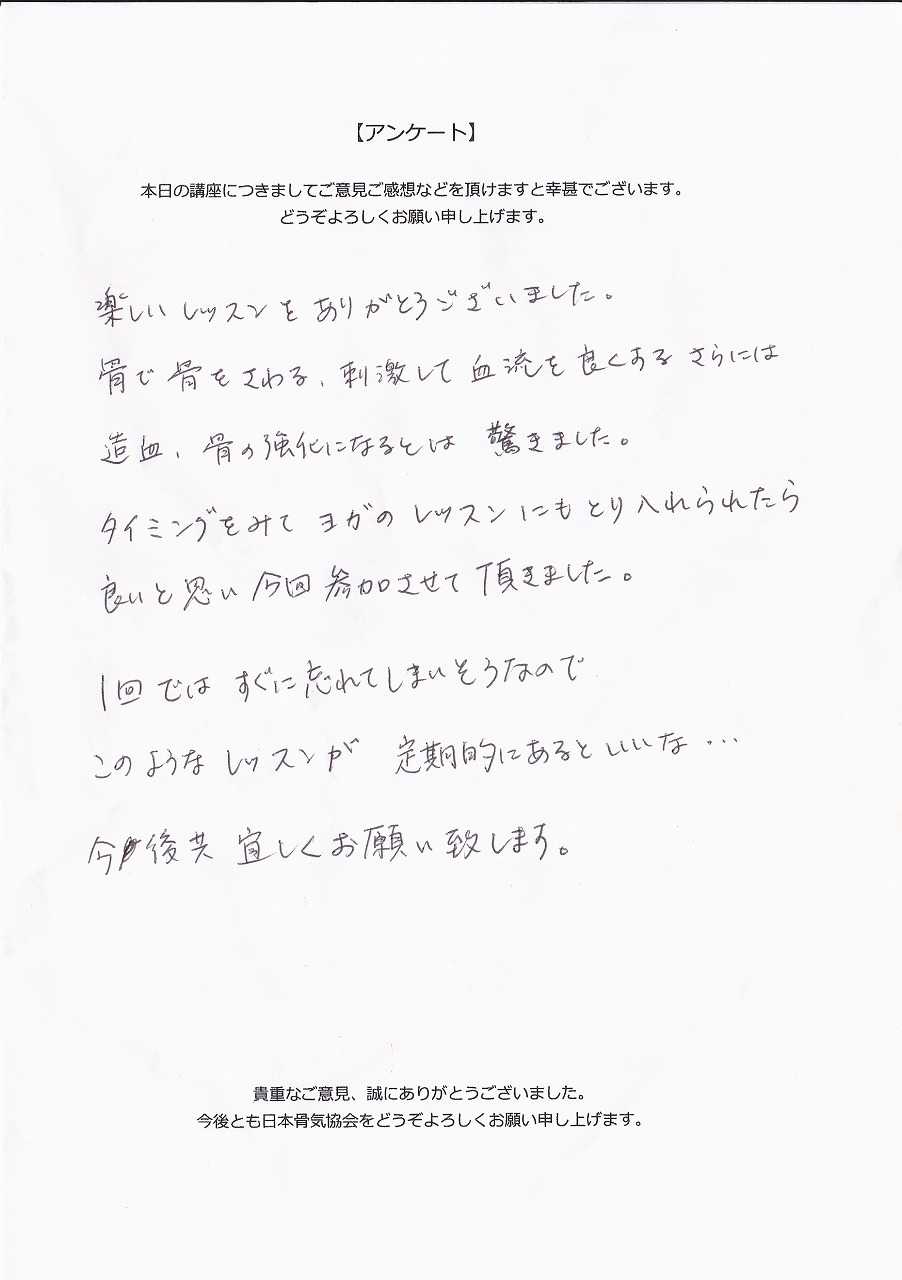 【アンケート】
本日の講座につきましてご意見ご感想などを頂けますと幸甚でございます。
どうぞよろしくお願い申し上げます。
楽しいレッスンをありがとうございました。
骨で骨をさわる、刺激して血流を良くする さらには
造血、骨の強化になるとは 驚きました。
タイミングをみて ヨガの レッスンにもとり入れられたら
良いと思い今回参加させて頂きました。
1回では すぐに忘れてしまいそうなので
このようなレッスンが 定期的にあるといいな…
今後共 宜しくお願い致します。
貴重なご意見、誠にありがとうございました。
今後とも日本骨気協会をどうぞよろしくお願い申し上げます。